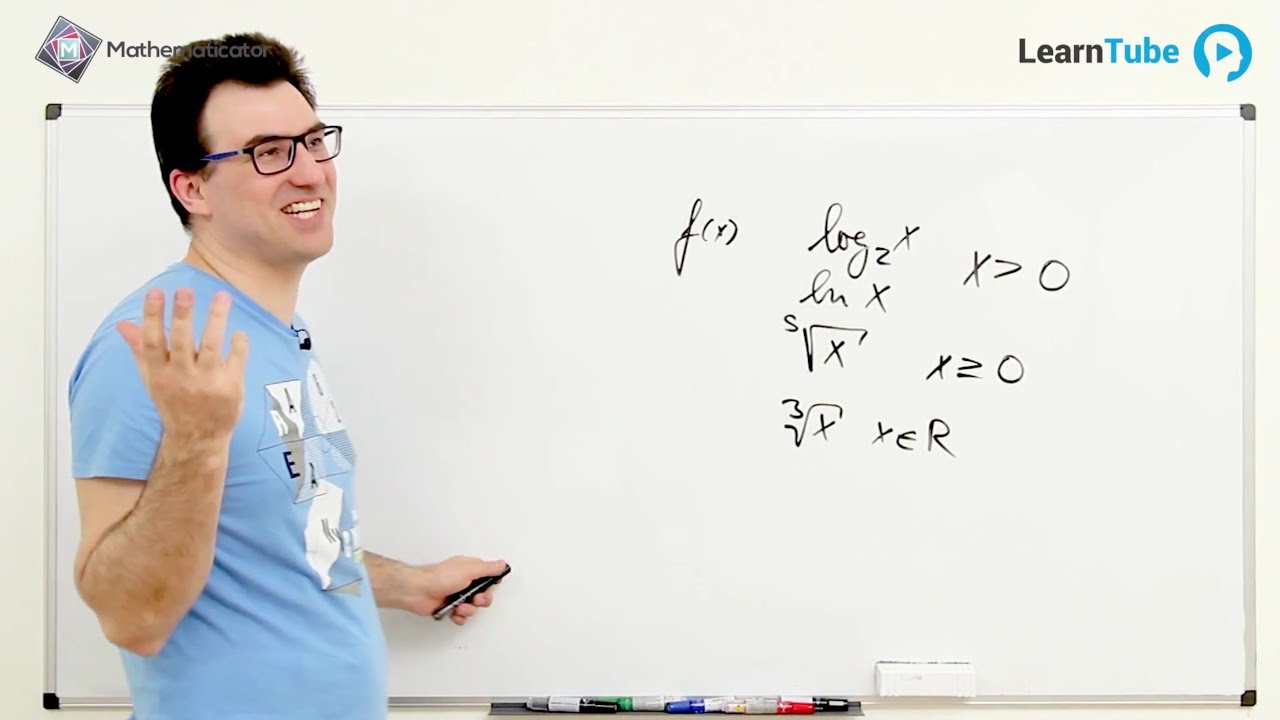 Mathematicator
LearnTube
f(x) log₂x
ln x x > 0
⁵√x x ≥ 0
³√x x ∈ R